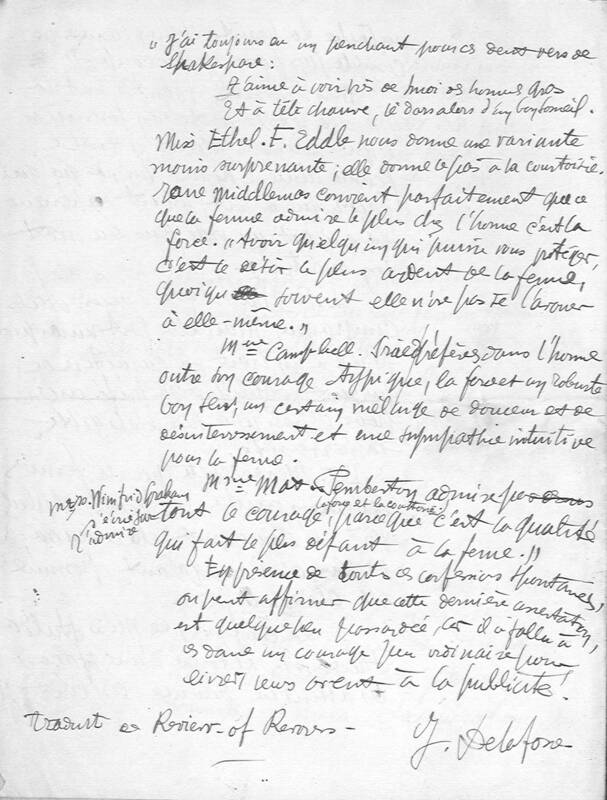 « J'ai toujours eu un penchant pour ces deux vers de
Shakespeare :
J'aime à voir près de moi des hommes gras
Et à tête chauve, dormant d'un bon sommeil.
Miss Ethel. F. Eddle nous donne une variante
moins surprenante ; elle donne le pas à la courtoisie.
Jane Middlemas convient parfaitement que ce
que la femme admire le plus chez l'homme c'est la
force. « Avoir quelqu'un qui puisse vous protéger,
c'est le désir le plus ardent de la femme,
quoique souvent elle n'ose pas se l'avouer
à elle-même. »
Mme Campbell. Praed préfère dans l'homme
outre son courage physique, la force et un robuste
bon sens, un certain mélange de douceur et de
désintéressement et une sympathie intuitive
pour la femme.
Mme Max Pemberton admire
Mrs. Winifred Graham
s'écrie
J'admire
la force et la
tout le courage, parce que c'est la qualité
qui fait le plus défaut à la femme. »
En présence de toutes ces confessions spontanées,
on peut affirmer que cette dernière assertation,
est quelque peu hasardée, car il a fallu à
ces dames un courage peu ordinaire pour
livrer leurs à la publicité.
Traduit Review of Reviews -
Delafosse